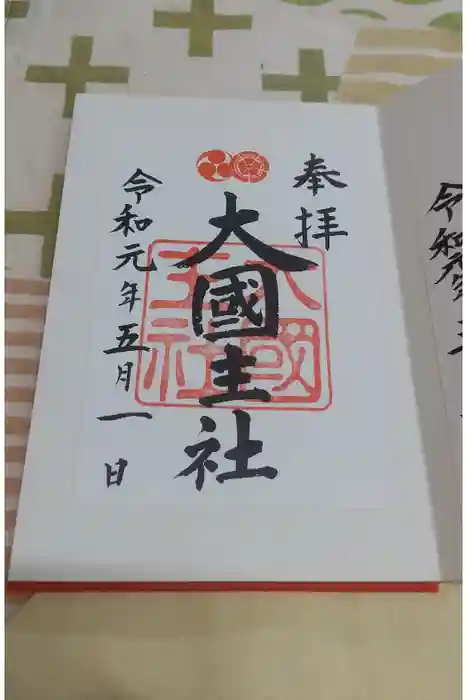 奉拝
大國主社
大國主社
令和元年五月一日
令和